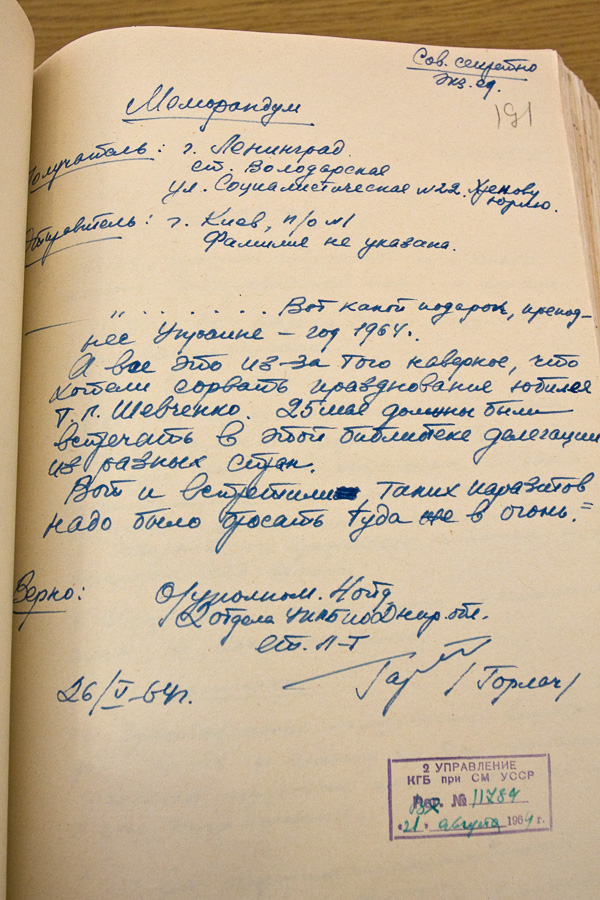 Сов. секретно
Экз. ед.
191
Меморандум
Получатель: г. Ленинград
ст. Володарская
ул. Социалистическая №22.
Юрию.
Отправитель: г. Киев, п/о №1
Фамилия не указана.
„ . . . . . . . Вот какой подарок, препод-
нес Украине – год 1964.
А все это из-за того наверное, что
хотели сорвать празднование юбилея
Т. Г. Шевченко. 25 мая должны были
встречать в этой библиотеке делегации
из разных стран.
Вот и встретили, таких паразитов
надо было бросать туда же в огонь."
Верно: О/уполном.
2 отдела
26/V-64г. /Горлач/
2 УПРАВЛЕНИЕ
КГБ при СМ УССР
Вх № 11789
„21" августа 1964 г.